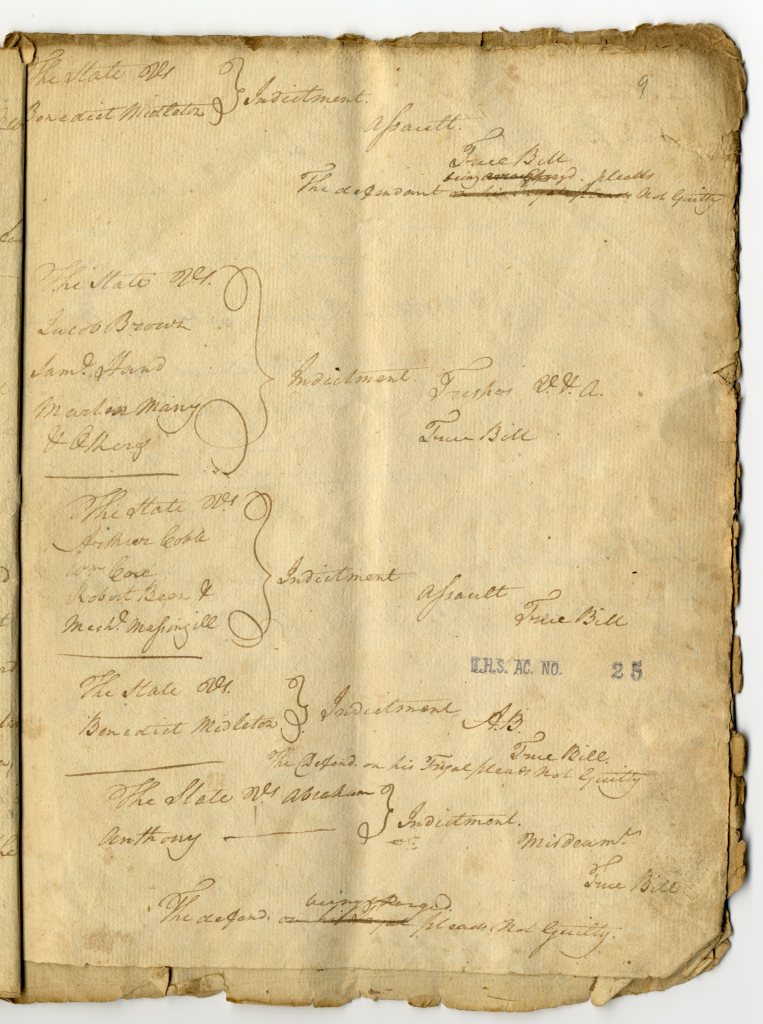 9
The State Vs
Benedict Midleton } Indictment.
Assault.
True Bill
being charged. pleads
The defendant on his Tryal pleads Not Guilty
The State Vs.
Jacob Brown
Saml. Hand
Martin Many
& Others
Indictment Trespas V. & A.
True Bill
The State Vs
Arthur Cobb
Wm Core
Robert Bean &
Mechl. Massingill
Indictment
Assault
True Bill
U.H.S. AC. NO. 25
The State Vs.
Benedict Midleton } Indictment
A.B.
True Bill.
The Defend. on his Tryal pleads Not Guilty
The State Vs Abraham
Anthony } Indictment.
Misdeamr.
True Bill
being charged
The defend. on his Tryal pleads Not Guilty.